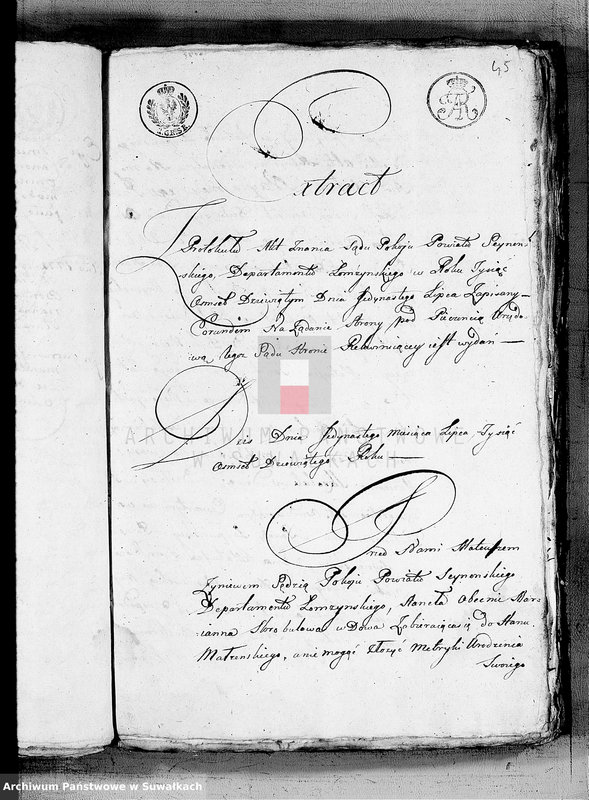 45
1.GR.SR.
Extract
Z Protokułu Akt Znania Sądu Pokoju Powiatu Seynen-
skiego, Departamentu Łomzynskiego w Roku Tysiąc
Osmset Dziewiątym Dnia Jedynastego Lipca Zapisany
Corundem Na Ządanie Strony pod Pieczęcią Urzędo-
wą tegoż Sądu Stronie Rekwiruiącey iest wydań
Dzis Dnia Jedynastego Miesiąca Lipca Tysiąc
Osmset Dziewiątego Roku
Przed Nami Mateuszem
Zyniewem Sędzią Pokoju Powiatu Seynenskiego
Departamentu Łomzynskiego, Staneła Obecnie Mar-
cianna wDowa Zabieraiąca się do Stanu
Małzenskiego, a nie mogąć złożyć Metryki Urodzenia
Swoiego
ARCHIWUM PAŃSTWOWE
W SUWAŁKACH
Archiwum Państwowe w Suwałkach